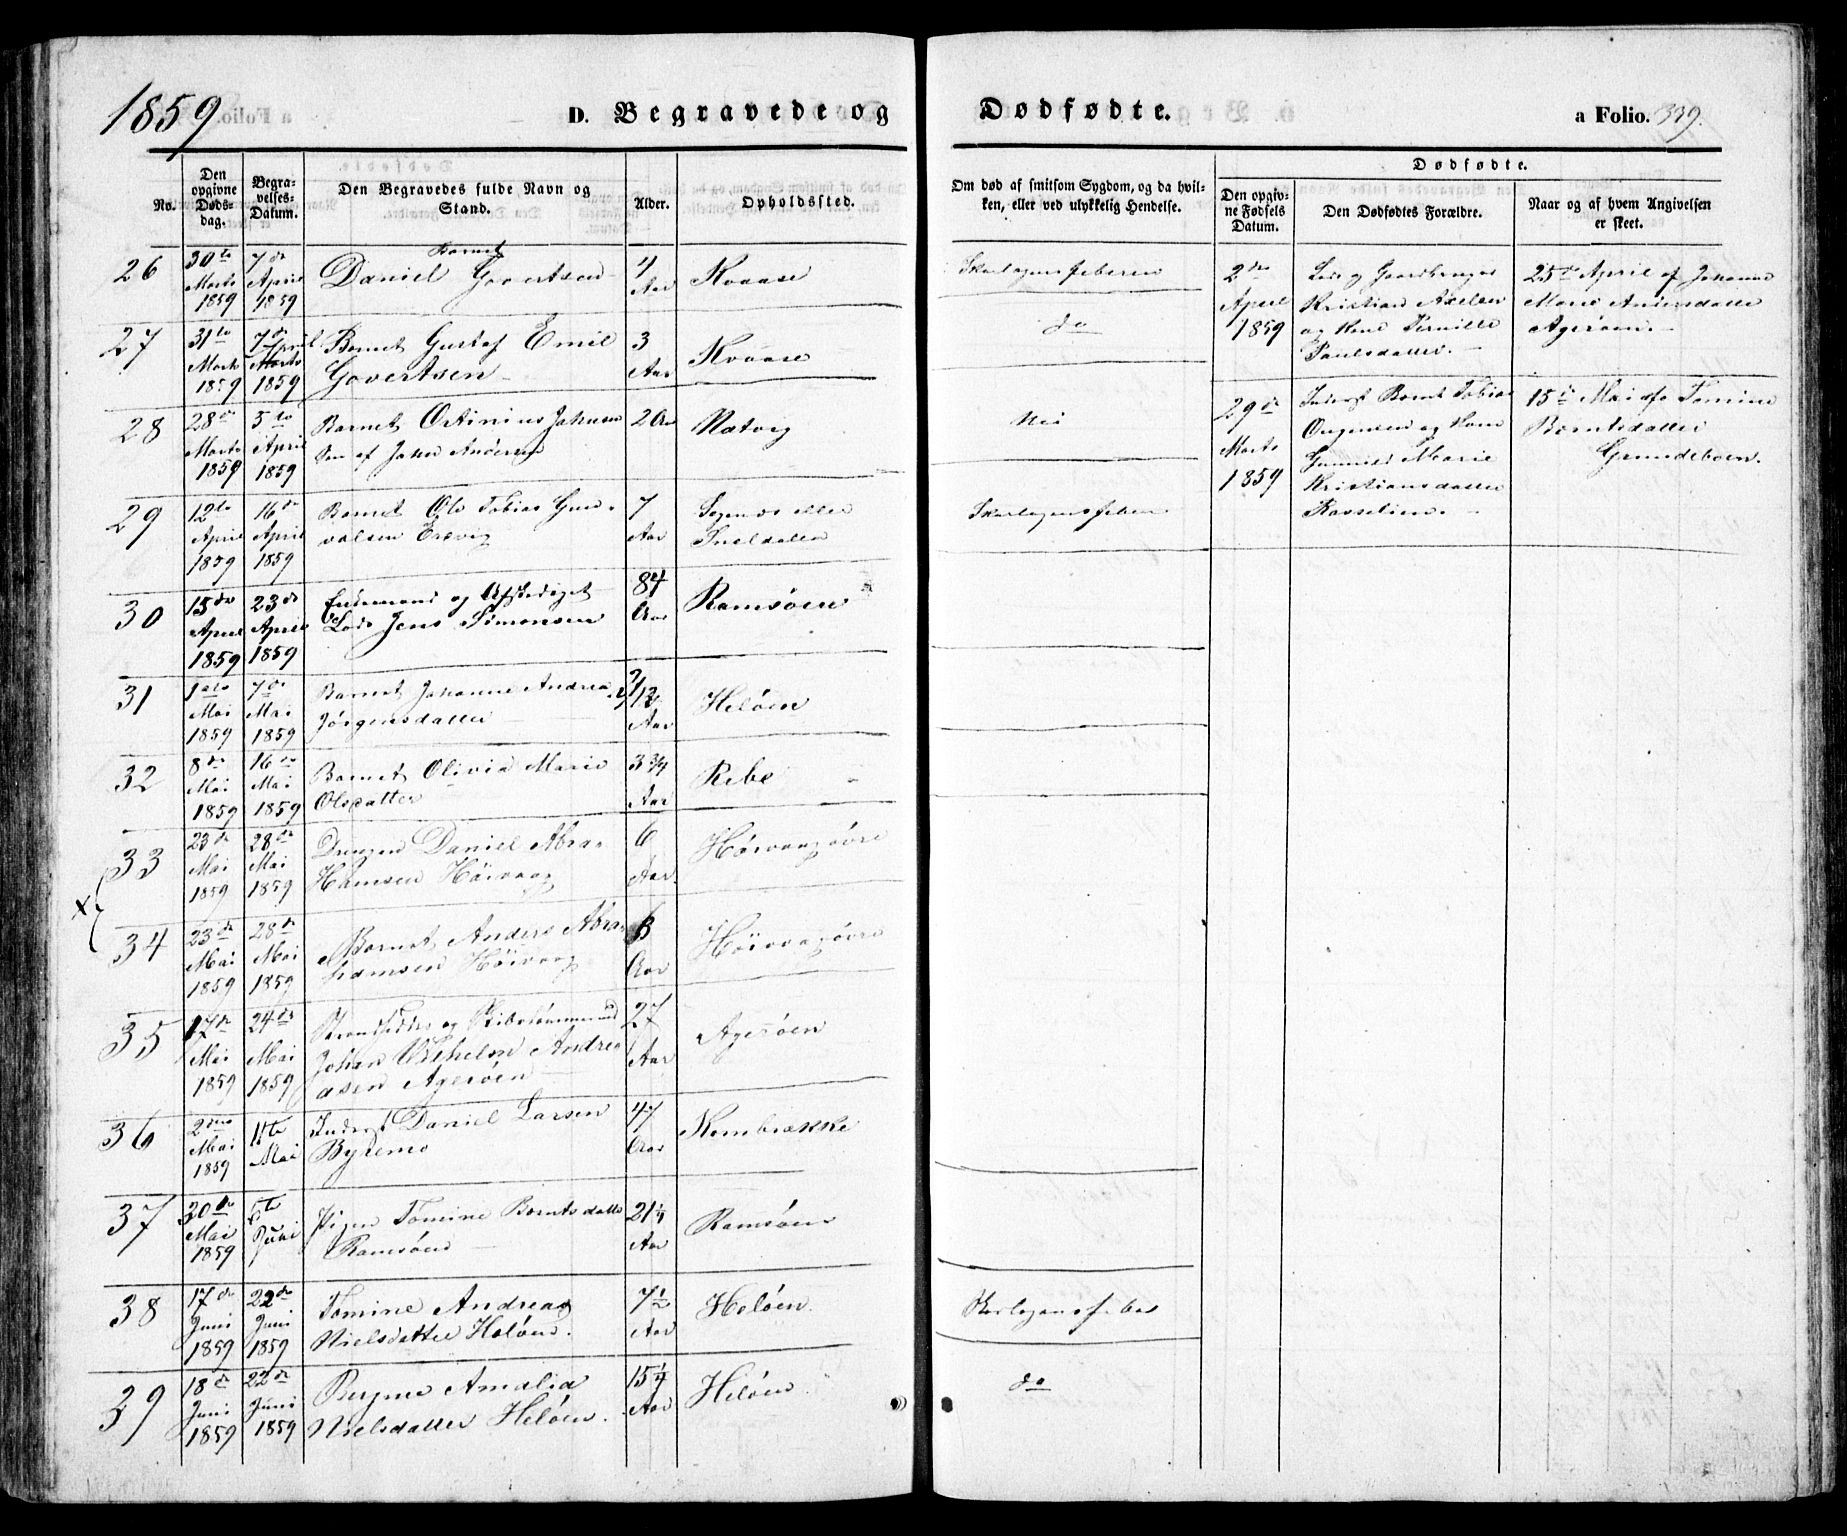 1859
D. Begravede og Dødfødte. a Folio. 339.
No.
Den opgivne Døds-dag.
Begra-velses-Datum.
Den Begravedes fulde Navn og Stand.
Alder.
Opholdssted.
Om død af smitsom Sygdom, og da hvil-ken, eller ved ulykkelig Hendelse.
Dødfødte.
Den opgiv-ne Fødsels Datum.
Den Dødfødtes Forældre.
Naar og af hvem Angivelsen er skeet.
26 30te Marts 1859 7de April 1859 Barnet Daniel Govertsen 4 Aar Kvaase Skarlagensfeberen
27 31te Marts 1859 7de April 1859 Barnet Gustaf Emil
Govertsen 3 Aar Kvaase do
28 28de Marts 1859 5te April 1859 Barnet Ortinius Johnsen
Søn af John Andersen 2 Aar Natvig Nei
29 12te April 1859 16de April 1859 Barnet Ole Tobias Gun-
valsen 7 Aar eller Skarlagensfeber
30 15de April 1859 23de April 1859 Enkemand og Afskediget
Lods Jens Simonsen 84 Aar Ramsøen
31 1ste Mai 1859 7de Mai 1859 Barnet Johanne Andrea
Jørgensdatter /12 Aar Heløen
32 8de Mai 1859 16de Mai 1859 Barnet Olivia Marie
Olsdatter 3 3/4 Aar Ribe
33 23de Mai 1859 28de Mai 1859 Drengen Daniel Abra-
hamsen Høivaag 6 Aar Høivaagøvre
34 23de Mai 1859 28de Mai 1859 Barnet Anders Abra-
hamsen Høivaag Aar Høivaagøvre
35 17de Mai 1859 24de Mai 1859 Strandsidder og Skibstømmermand
Johan Wilhelm Andrea
asen Agerøen 27 Aar Agerøen
36 2den Mai 1859 11te Mai Inderst Daniel Larsen
Byremo 47 Aar Kombrække
37 30de Mai 1859 6te Juni Pigen Tomine Berntsdatter
Ramsøen 21 1/4 Aar Ramsøen
38 17de Juni 1859 22de Juni 1859 Tomine Andrea
Nielsdatter Heløen. 7 1/2 Aar Heløen. Skarlagensfeber
39 18de Juni 1859 22de Juni 1859 Amalia
Nielsdatter Heløen. 15 1/4 Aar Heløen do
2den April 1859
Lods og Gaardbruger
Kristian Axelsen
og Kone Pernille
Paulsdatter.
25de April af Johanne
Marie Andersdatter
Agerøen.
29de Marts 1859
Inderst Bernt Tobias
og Kone
Gunnild Marie
Kristiansdatter
15de Mai af Tomine
Berntsdatter
Grundeboen.